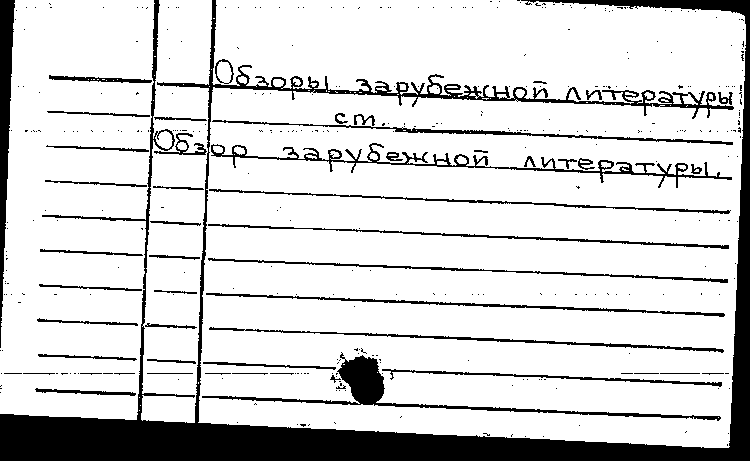 Обзоры зарубежной литературы
ст.
Обзор зарубежной литературы.